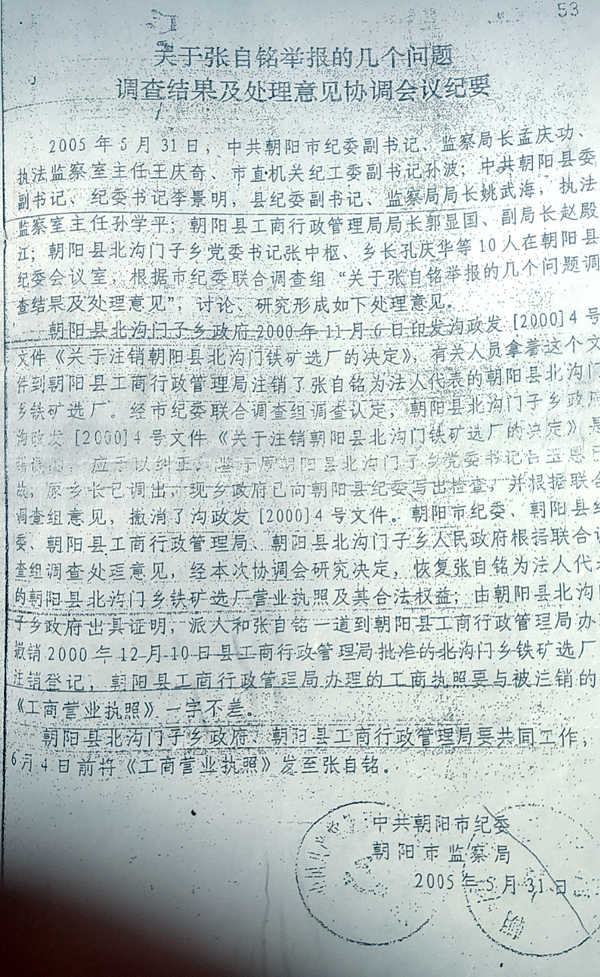 53
关于张自铭举报的几个问题
调查结果及处理意见协调会议纪要
2005年5月31日，中共朝阳市纪委副书记、监察局长孟庆功、
执法监察室主任王庆奇、市直机关纪工委副书记孙波；中共朝阳县委
副书记、纪委书记李景明，县纪委副书记、监察局局长姚武海，执法
监察室主任孙学平；朝阳县工商行政管理局局长郭显国、副局长赵殿
江；朝阳县北沟门子乡党委书记张中枢、乡长孔庆华等10人在朝阳县
纪委会议室，根据市纪委联合调查组“关于张自铭举报的几个问题调
查结果及处理意见”，讨论、研究形成如下处理意见。
朝阳县北沟门子乡政府2000年11月6日印发沟政发[2000]4号
文件《关于注销朝阳县北沟门铁矿选厂的决定》，有关人员拿着这个文
件到朝阳县工商行政管理局注销了张自铭为法人代表的朝阳县北沟门
乡铁矿选厂。经市纪委联合调查组调查认定，朝阳县北沟门子乡政府
沟政发[2000]4号文件《关于注销朝阳县北沟门铁矿选厂的决定》是
应予以纠正。鉴于原朝阳县北沟门子乡党委书记吕玉恩已
故，原乡长已调出，现乡政府已向朝阳县纪委写出检查，并根据联合
调查组意见，撤消了沟政发[2000]4号文件。朝阳市纪委、朝阳县纪
委、朝阳县工商行政管理局、朝阳县北沟门子乡人民政府根据联合调
查组调查处理意见，经本次协调会研究决定，恢复张自铭为法人代表
的朝阳县北沟门乡铁矿选厂营业执照及其合法权益；由朝阳县北沟门
子乡政府出具证明，派人和张自铭一道到朝阳县工商行政管理局办
撤销2000年12月10日县工商行政管理局批准的北沟门乡铁矿选厂
注销登记，朝阳县工商行政管理局办理的工商执照要与被注销的
《工商营业执照》一字不差。
朝阳县北沟门子乡政府、朝阳县工商行政管理局要共同工作，
6月4日前将《工商营业执照》发至张自铭。
中共朝阳市纪委
朝阳市监察局
2005年5月31日